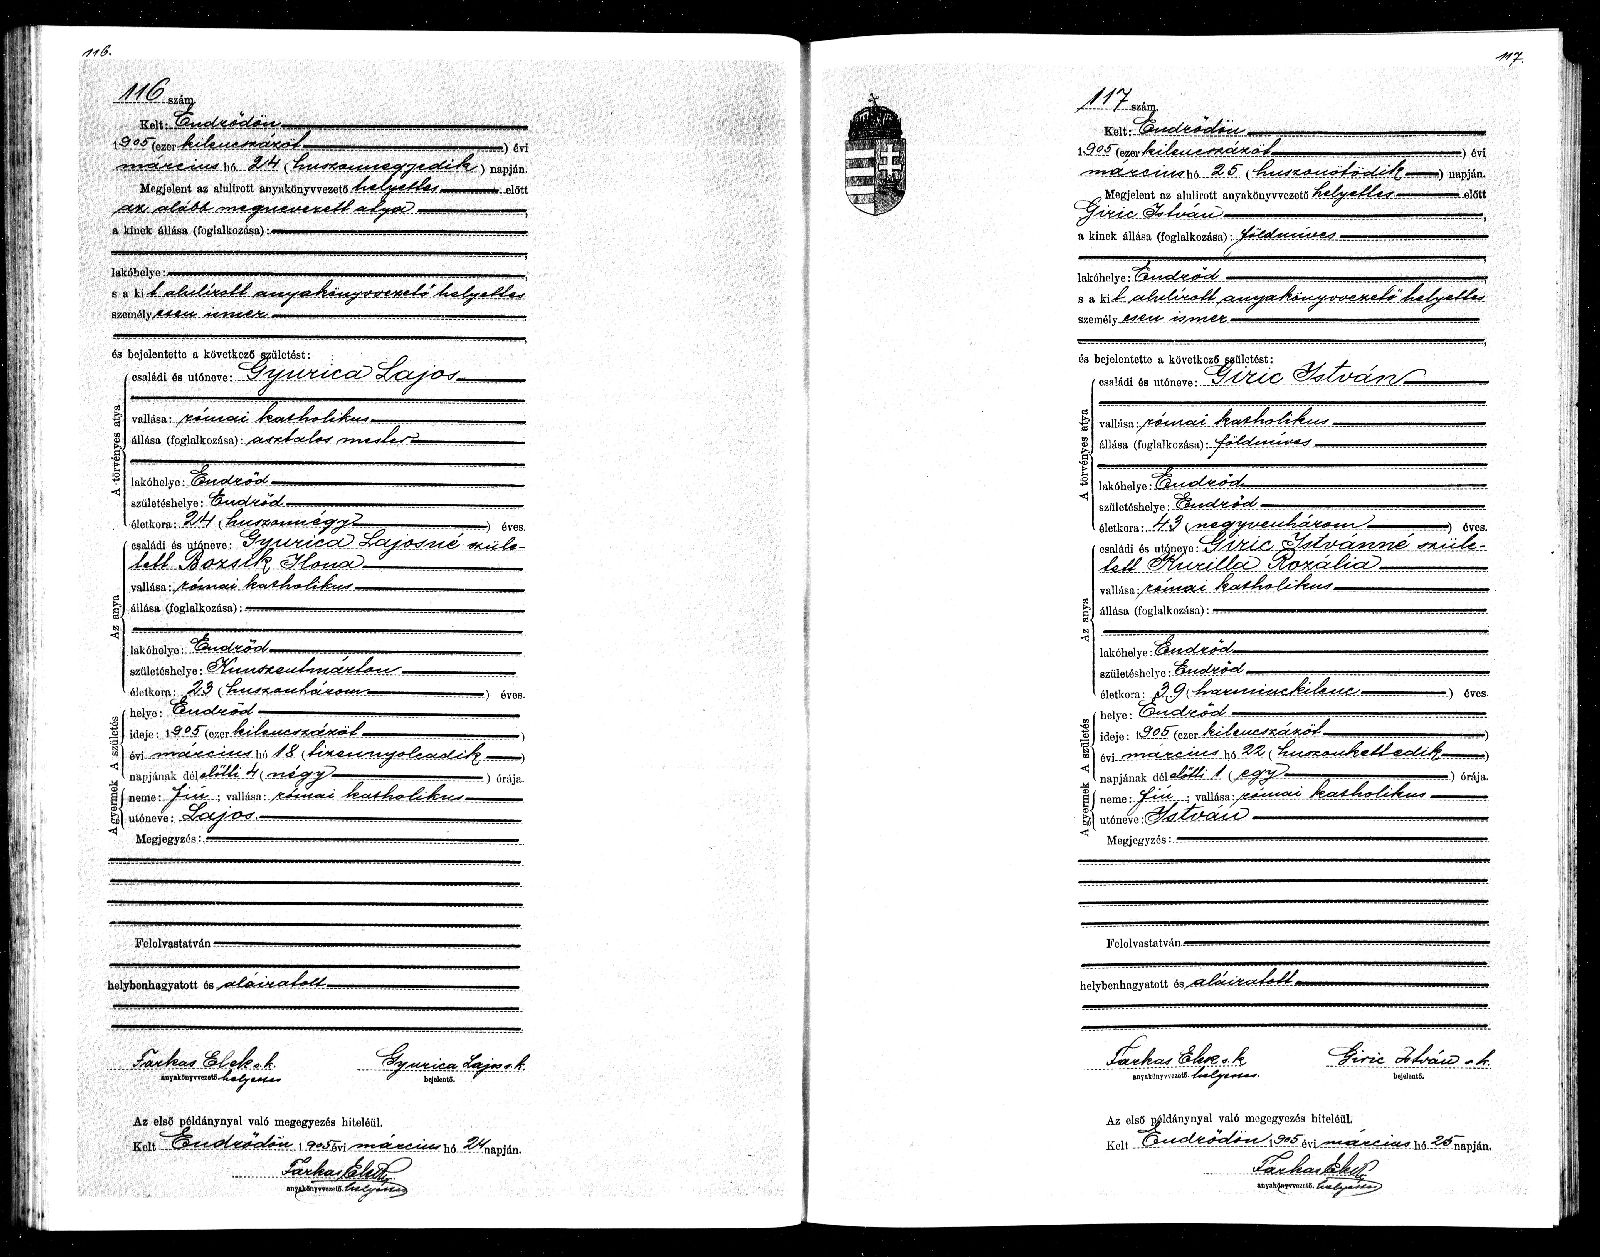 116.
116 szám
Kelt: Endrődön
1905 (ezer kilenczázöt) évi
március hó 24 (huszonnegyedik) napján.
Megjelent az alulirott anyakönyvvezető helyettes előtt
az alább megnevezett atya,
a kinek állása (foglalkozása):
lakóhelye:
s a kit alulírott anyakönyvvezető helyettes
személyesen ismer
és bejelentette a következő születést:
A törvényes atya
családi és utóneve: Gyurica Lajos
vallása: római katholikus
állása (foglalkozása): asztalos mester
lakóhelye: Endrőd
születéshelye: Endrőd
életkora: 24 (huszonnégy) éves.
Az anya
családi és utóneve: Gyurica Lajosné szüle-
tett Bozsik Ilona
vallása: római katholikus
állása (foglalkozása):
lakóhelye: Endrőd
születéshelye: Kunszentmárton
életkora: 23 (huszonhárom) éves.
A születés
helye: Endrőd
ideje: 1905 (ezer kilencszázöt)
évi március hó 18 (tizennyolcadik)
napjának délelőtti 4 (négy) órája.
A gyermek
neme: fiú; vallása: római katholikus
utóneve: Lajos
Megjegyzés:
Felolvastatván
helybenhagyatott és aláiratott
Farkas Elek s. k. Gyurica Lajos s. k.
anyakönyvvezető. helyettes bejelentő.
Az első példánynyal való megegyezés hiteléül.
Kelt Endrődön 1905 évi március hó 24 napján.
Farkas Elek
anyakönyvvezető. helyettes
117.
117 szám.
Kelt: Endrődön
1905 (ezer kilencszázöt) évi
március hó 25 (huszonötödik) napján.
Megjelent az alulirott anyakönyvvezető helyettes előtt
Giric István,
a kinek állása (foglalkozása): földmíves
lakóhelye: Endrőd
s a kit alulírott anyakönyvvezető helyettes
személyesen ismer
és bejelentette a következő születést:
A törvényes atya
családi és utóneve: Giric István
vallása: római katholikus
állása (foglalkozása): földmíves
lakóhelye: Endrőd
születéshelye: Endrőd
életkora: 43 (negyvenhárom) éves.
Az anya
családi és utóneve: Giric Istvánné szüle-
tett Kurilla Rozália
vallása: római katholikus
állása (foglalkozása):
lakóhelye: Endrőd
születéshelye: Endrőd
életkora: 39 (harminckilenc) éves.
A születés
helye: Endrőd
ideje: 1905 (ezer kilencszázöt)
évi március hó 22 (huszonkettedik)
napjának délelőtti 1 (egy) órája.
A gyermek
neme: fiú; vallása: római katholikus
utóneve: István
Megjegyzés:
Felolvastatván
helybenhagyatott és aláiratott
Farkas Elek s. k. Giric István s. k.
anyakönyvvezető. helyettes bejelentő.
Az első példánynyal való megegyezés hiteléül.
Kelt Endrődön 1905 évi március hó 25 napján.
Farkas Elek
anyakönyvvezető. helyettes